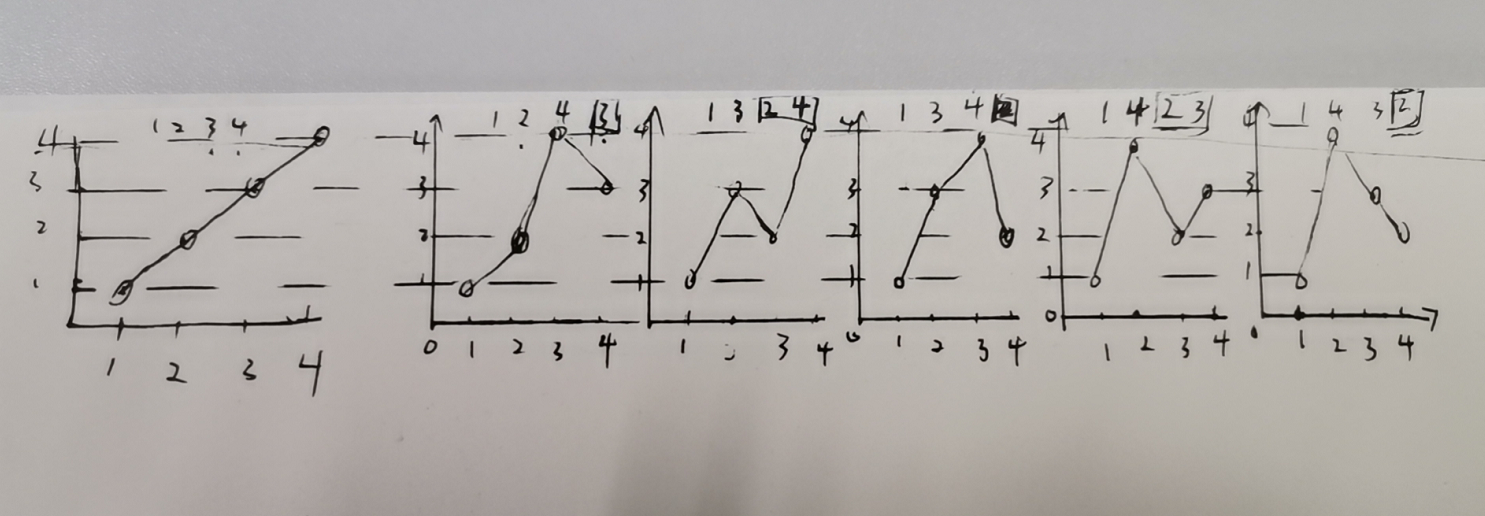 1 2 3 4
4
3
2
1
1 2 3 4
1 2 4 3
4
3
2
1
0 1 2 3 4
1 3 2 4
4
3
2
1
1 3 4
1 3 4
4
3
2
1
0 1 2 3 4
1 4 2 3
4
3
2
1
0 1 2 3 4
1 4 3 2
3
2
1
1 2 3 4